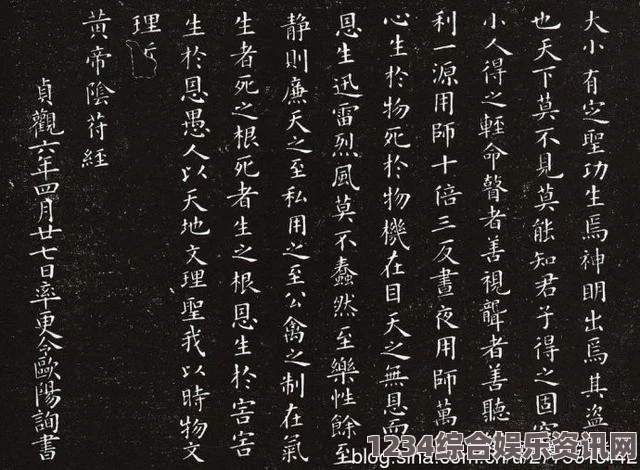 大小有定聖功生焉神明出焉其盜
也天下莫不見莫能知君子得之固窮
小人得之輕命瞽者善視聾者善聽
利一源用師十倍三反晝夜用師萬
心生於物死於物機在目天之無恩而
恩生迅雷烈風莫不蠢然至樂性餘至
靜則廉天之至私用之至公禽之制在氣
生者死之根死者生之根恩生於害害
生於恩愚人以天地文理聖我以時物文
理
黃帝陰符經
貞觀六年四月廿七日率更令歐陽詢書
1234综合娱乐资讯网